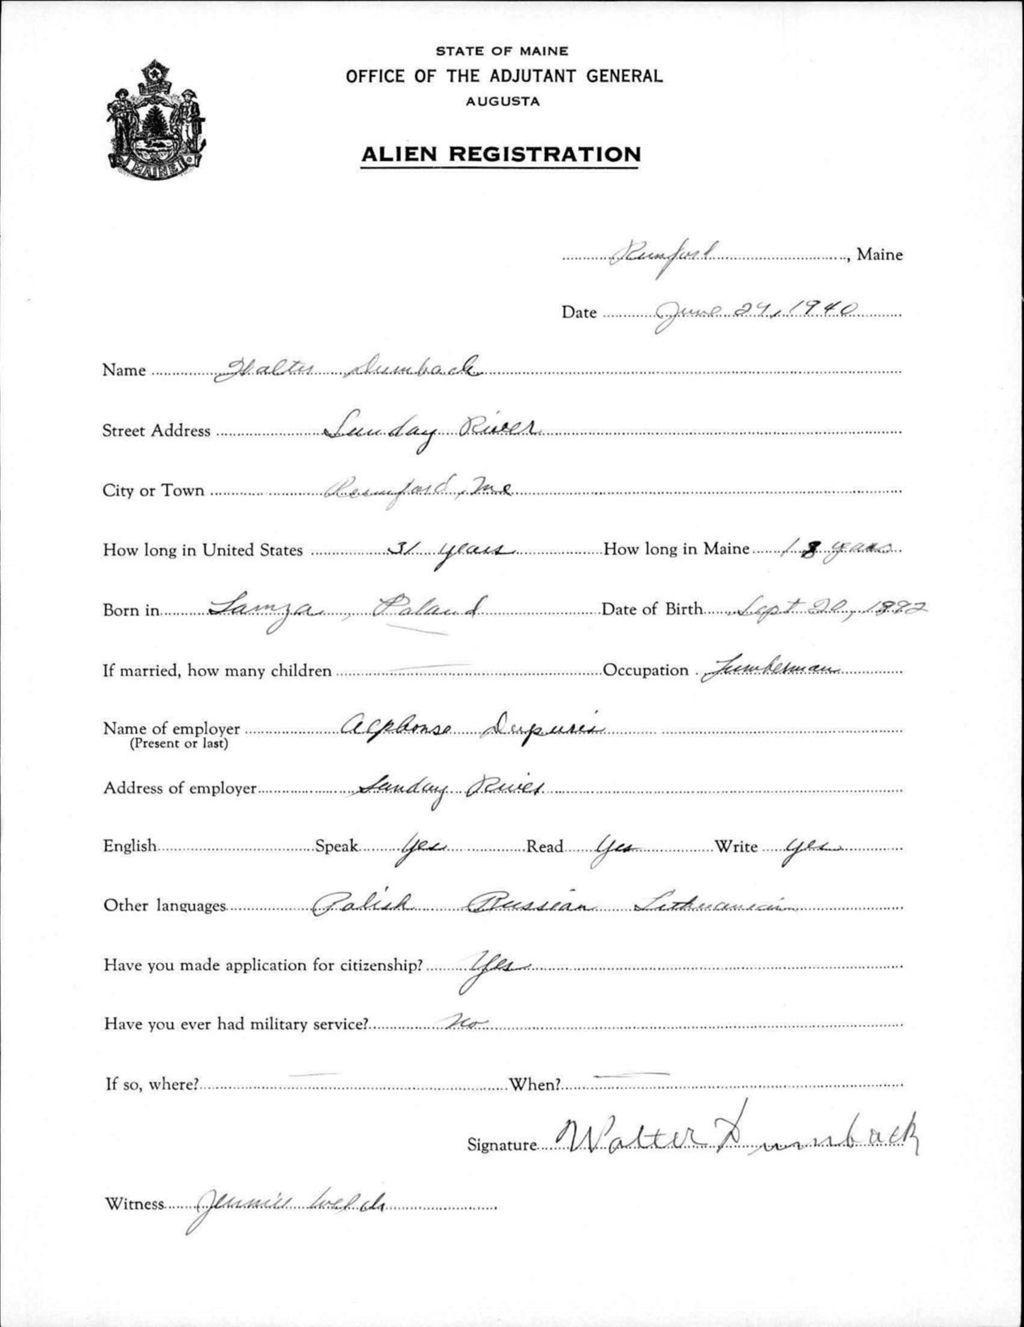 STATE OF MAINE
OFFICE OF THE ADJUTANT GENERAL
AUGUSTA
ALIEN REGISTRATION
MAINE
Rumford, Maine
Date June 24, 1940
Name Walter Dumback
Street Address Sunday River
City or Town Rumford, Me
How long in United States 31 years How long in Maine 18 years
Born in Lamza, Poland Date of Birth Sept 20, 1892
If married, how many children — Occupation Lumberman
Name of employer Alphonse Dupuris
(Present or last)
Address of employer Sunday River
English Speak Yes Read Yes Write Yes
Other languages Polish Russian Lithuanian
Have you made application for citizenship? Yes
Have you ever had military service? No
If so, where? — When? —
Signature Walter Dumback
Witness Jennie Welch